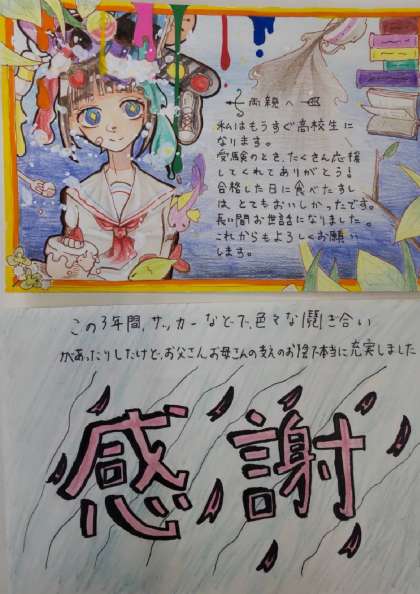 両親へ
私はもうすぐ高校生に
なります。
受験のとき、たくさん応援
してくれてありがとう！
合格した日に食べたすし
は、とてもおいしかったです。
長い間お世話になりました。
これからもよろしくお願い
します。
この3年間、サッカーなどで、色々な鬩ぎ合い
があったりしたけど、お父さん、お母さんの支えのお陰で本当に充実しました
感謝